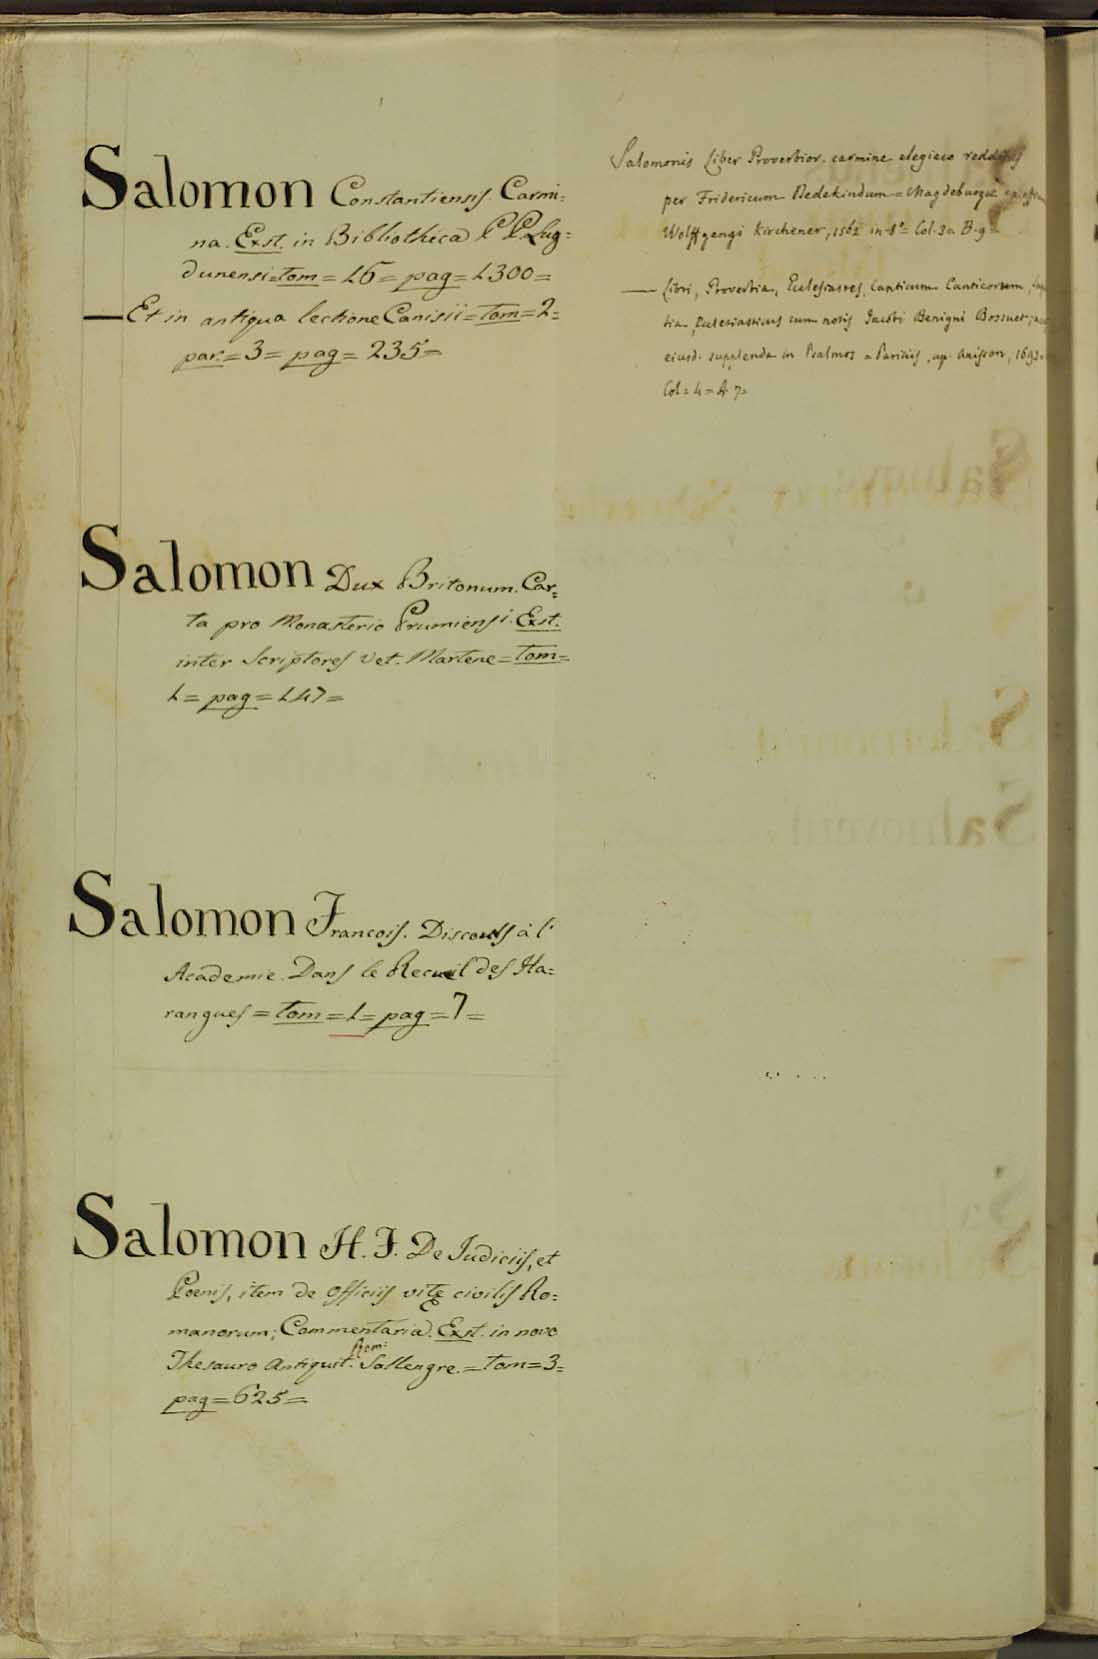 Salomon Constantiensis. Carmi=
na. Exst. in Bibliotheca P P. Lug=
dunensi = tom = 16 = pag = 1300 =
— Et in antiqua lectione Canisii = tom = 2 =
par. = 3 = pag = 235 =
Salomon Dux Britonum. Car=
ta pro Monasterio Prumiensi. Exst.
inter Scriptores Vet. Martene = tom =
1 = pag = 147 =
Salomon Francois. Discours à l'
Academie. Dans le Recueil des Ha=
rangues = tom = 1 = pag = 7 =
Salomon H. F. De Judiciis, et
Poenis, item de officiis vitę civilis Ro=
manorum; Commentaria. Exst. in novo
Thesauro Antiquit. Rom: Sallengre. = tom = 3 =
pag = 625 =
Salomonis Liber Proverbior. carmine elegiaco redditus
per Fridericum Dedekindum = Magdeburgae
Wolffgangi Kirchener, 1562 in 8° = Col. 3a B. 9 =
— Libri, Proverbia, Eclesiastes, Canticum Canticorum,
tia, Eclesiasticus cum notis Jacobi Benigni Bossuet;
eiusd. supplenda in Psalmos = Parisiis, ap. Anisson, 1693 =
Col = 4 = A 7 =